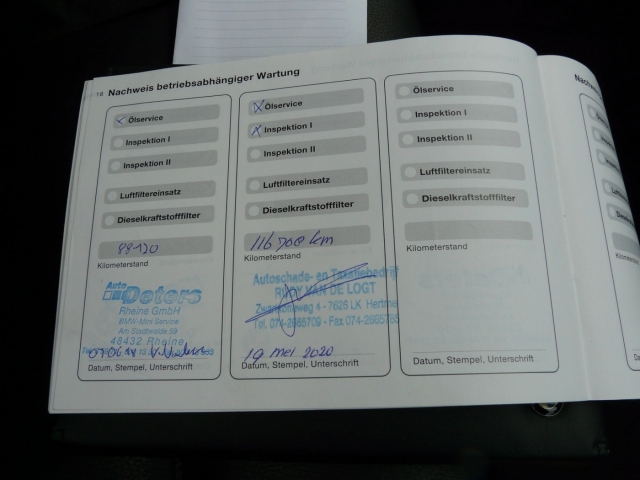 18 Nachweis betriebsabhängiger Wartung
Ölservice
Inspektion I
Inspektion II
Luftfiltereinsatz
Dieselkraftstofffilter
99120
Kilometerstand
Auto
Deters
Rheine GmbH
BMW-Mini Service
Am Stadtwalde 59
48432 Rheine
Datum, Stempel, Unterschrift
X Ölservice
X Inspektion I
Inspektion II
Luftfiltereinsatz
Dieselkraftstofffilter
116 700 km
Kilometerstand
Autoschade- en Taxatiebedrijf
RUDY VAN DE LOGT
4 - 7626 LK Hertme
Tel. 074-2665709 - Fax 074-2665765
19 mei 2020
Datum, Stempel, Unterschrift
Ölservice
Inspektion I
Inspektion II
Luftfiltereinsatz
Dieselkraftstofffilter
Kilometerstand
Datum, Stempel, Unterschrift